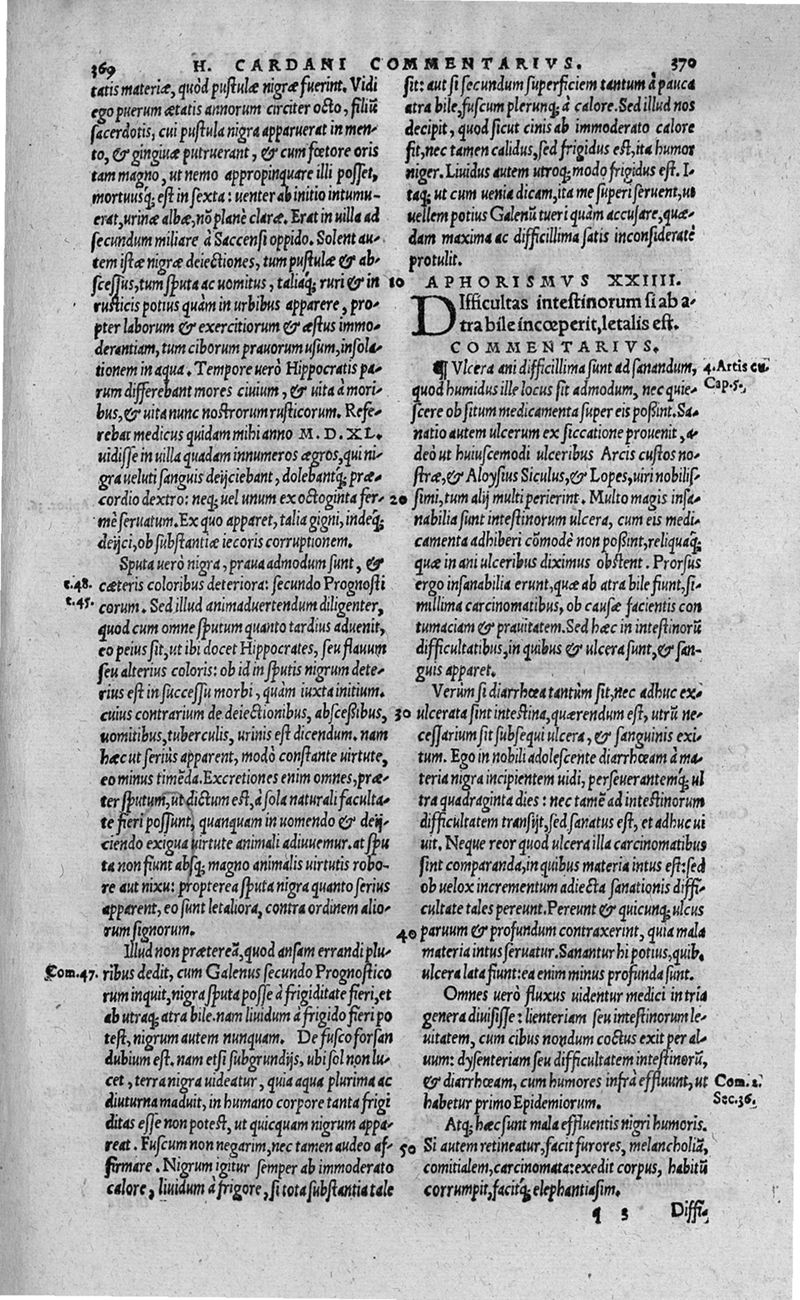 369 H. CARDANI COMMENTARIVS. 370
tatis materiæ, quòd pustulæ nigræ fuerint. Vidi
ego puerum ætatis annorum circiter octo, filiũ
sacerdotis, cui pustula nigra apparuerat in men-
to, & gingiuæ putruerant, & cum fœtore oris
tam magno, ut nemo appropinquare illi posset,
mortuusq; est in sexta: uenter ab initio intumu-
erat, urinæ albæ, nõ planè claræ. Erat in uilla ad
secundum miliare à Saccensi oppido. Solent au-
tem istæ nigræ deiectiones, tum pustulæ & ab-
scessus, tum sputa ac uomitus, taliaq; ruri & in
rusticis potius quàm in urbibus apparere, pro-
pter laborum & exercitiorum & æstus immo-
derantiam, tum ciborum prauorum usum, insola-
tionem in aqua. Tempore uerò Hippocratis pa-
rum differebant mores ciuium, & uita à mori-
bus, & uita nunc nostrorum rusticorum. Refe-
rebat medicus quidam mihi anno M. D. XL.
uidisse in uilla quadam innumeros ægros, qui ni-
gra ueluti sanguis deijciebant, dolebantq; præ-
cordio dextro: neq; uel unum ex octoginta fer-
mè seruatum. Ex quo apparet, talia gigni, indeq;
deijci, ob substantiæ iecoris corruptionem.
Sputa uerò nigra, praua admodum sunt, &
c.48. cæteris coloribus deteriora: secundo Prognosti
t.45. corum. Sed illud animaduertendum diligenter,
quod cum omne sputum quanto tardius aduenit,
eo peius sit, ut ibi docet Hippocrates, seu flauum
seu alterius coloris: ob id in sputis nigrum dete-
rius est in successu morbi, quàm iuxta initium.
cuius contrarium de deiectionibus, abscessibus,
uomitibus, tuberculis, urinis est dicendum. nam
hæc ut seriùs apparent, modò constante uirtute,
eo minus timẽda. Excretiones enim omnes, præ-
ter sputum, ut dictum est, à sola naturali faculta-
te fieri possunt, quanquam in uomendo & deij-
ciendo exigua uirtute animali adiuuemur. at spu
ta non fiunt absq; magno animalis uirtutis robo-
re aut nixu: propterea sputa nigra quanto serius
apparent, eo sunt letaliora, contra ordinem alio-
rum signorum.
Illud non præterea, quod ansam errandi plu-
Com.47. ribus dedit, cum Galenus secundo Prognostico
rum inquit, nigra sputa posse à frigiditate fieri, et
ab utraq; atra bile. nam liuidum à frigido fieri po
test, nigrum autem nunquam. De fusco forsan
dubium est. nam etsi subgrundijs, ubi sol non lu-
cet, terra nigra uideatur, quia aqua plurima ac
diuturna maduit, in humano corpore tanta frigi
ditas esse non potest, ut quicquam nigrum appa-
reat. Fuscum non negarim, nec tamen audeo af-
firmare. Nigrum igitur semper ab immoderato
calore, liuidum à frigore, si tota substantia tale
sit: aut si secundum superficiem tantum à pauca
atra bile, fuscum plerunq; à calore. Sed illud nos
decipit, quod sicut cinis ab immoderato calore
fit, nec tamen calidus, sed frigidus est, ita humor
niger. Liuidus autem utroq; modo frigidus est. I-
taq; ut cum uenia dicam, ita me superi seruent, ut
uellem potius Galenũ tueri quàm accusare, quæ-
dam maxima ac difficillima satis inconsideratè
protulit.
10 APHORISMVS XXIIII.
DIfficultas intestinorum si ab a-
tra bile incœperit, letalis est.
COMMENTARIVS.
¶ Vlcera ani difficillima sunt ad sanandum, 4. Artis cu.
quod humidus ille locus sit admodum, nec quie- Cap.5.
scere ob situm medicamenta super eis possint. Sa-
natio autem ulcerum ex siccatione prouenit, a-
deò ut huiuscemodi ulceribus Arcis custos no-
stræ, & Aloysius Siculus, & Lopes, uiri nobilis-
20 simi, tum alij multi perierint. Multo magis insa-
nabilia sunt intestinorum ulcera, cum eis medi-
camenta adhiberi cõmodè non possint, reliquaq;
quæ in ani ulceribus diximus obstent. Prorsus
ergo insanabilia erunt, quæ ab atra bile fiunt, si-
millima carcinomatibus, ob causæ facientis con
tumaciam & prauitatem. Sed hæc in intestinorũ
difficultatibus, in quibus & ulcera sunt, & san-
guis apparet.
Verùm si diarrhœa tantùm sit, nec adhuc ex-
30 ulcerata sint intestina, quærendum est, utrũ ne-
cessarium sit subsequi ulcera, & sanguinis exi-
tum. Ego in nobili adolescente diarrhœam à ma-
teria nigra incipientem uidi, perseuerantemq; ul
tra quadraginta dies: nec tamẽ ad intestinorum
difficultatem transijt, sed sanatus est, et adhuc ui
uit. Neque reor quod ulcera illa carcinomatibus
sint comparanda, in quibus materia intus est: sed
ob uelox incrementum adiecta sanationis diffi-
cultate tales pereunt. Pereunt & quicunq; ulcus
40 paruum & profundum contraxerint, quia mala
materia intus seruatur. Sanantur hi potius, quib.
ulcera lata fiunt: ea enim minus profunda sunt.
Omnes uerò fluxus uidentur medici in tria
genera diuisisse: lienteriam seu intestinorum le-
uitatem, cum cibus nondum coctus exit per al-
uum: dysenteriam seu difficultatem intestinorũ,
& diarrhœam, cum humores infrà effluunt, ut Com. 2.
habetur primo Epidemiorum. Sec.36.
Atq; hæc sunt mala effluentis nigri humoris.
50 Si autem retineatur, facit furores, melancholiã,
comitialem, carcinomata: exedit corpus, habitũ
corrumpit, facitq; elephantiasim.
¶ 3 Diffi-